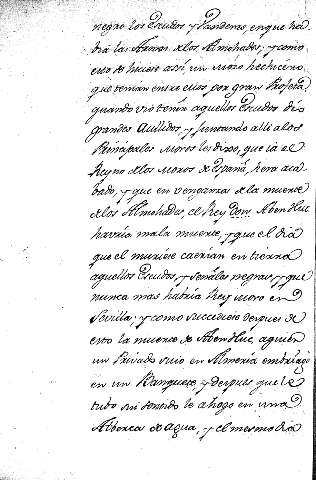 negro los Escudos y Pendones, en que ha-
via las Armas de los Almohades, y como
esto se hiciese assi, un Moro hechicero,
que tenian entre ellos por gran Profeta,
quando vió tenia aquellos Escudos dió
grandes Aullidos, y juntando alli a los
Principales Moros les dixo, que ia el
Reyno de los Moros de España, hera aca-
bado, y que en venganza de la muerte
de los Almohades, el Rey Dom Aben Huc
havria mala muerte, y que el dia
que el muriese caerian en tierra
aquellos Escudos, y señales negras, y que
nunca mas habria Rey Moro en
Sevilla; y como succediese despues de
esto la muerte de Aben Huc, a quien
un Privado suio en Almeria embriago
en un Banquete, y despues que le
tubo sin sentido le ahogo en una
Alberca de agua, y el mesmo dia